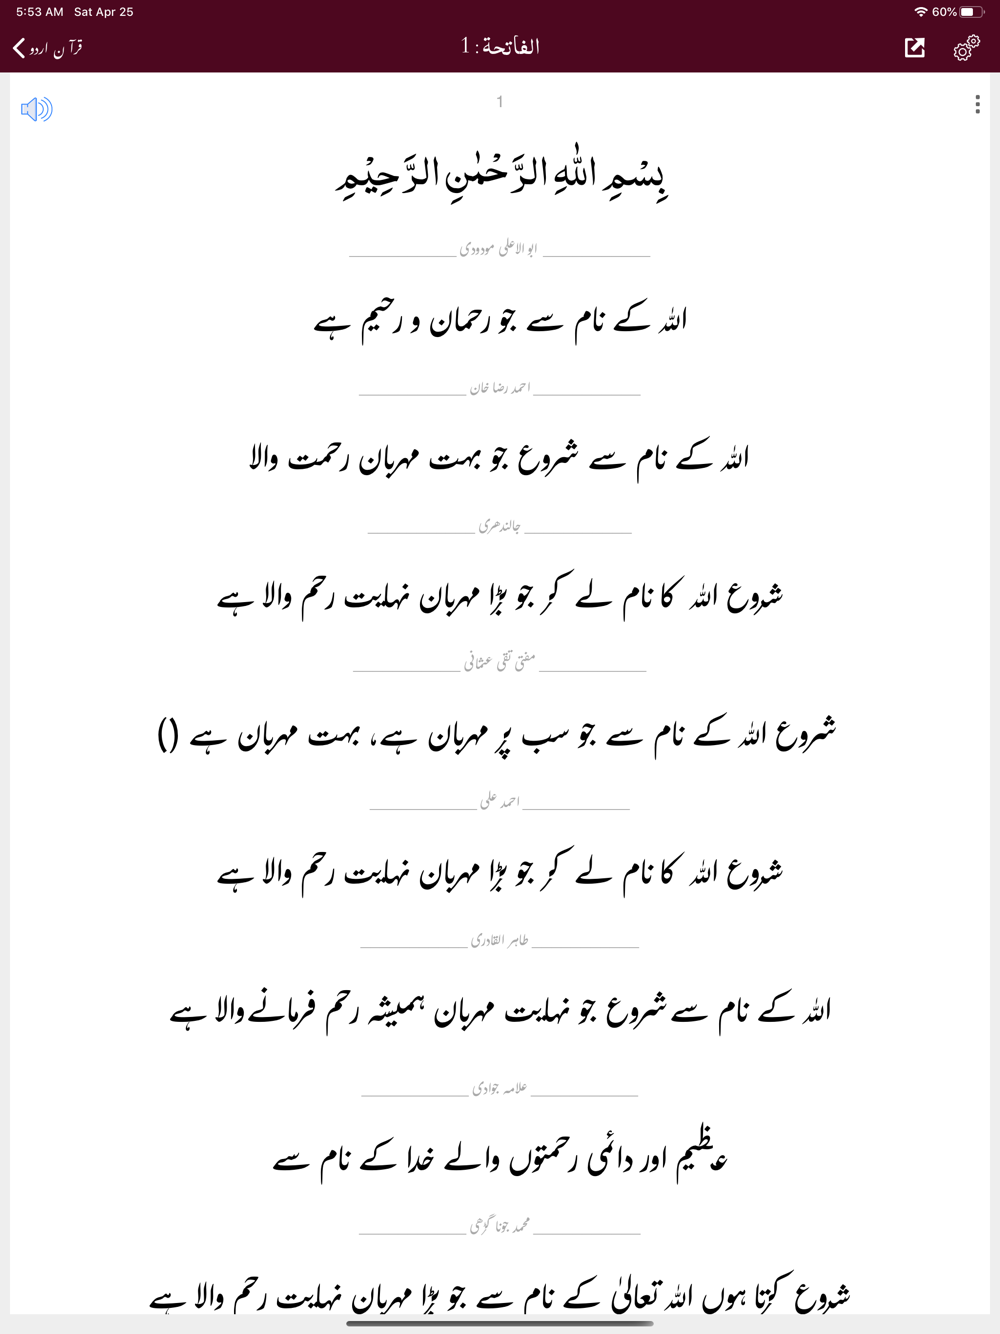 5:53 AM Sat Apr 25 60%
قرآن اردو
الفاتحة: 1
1
بِسْمِ اللّٰهِ الرَّحْمٰنِ الرَّحِيْمِ
ابو الاعلی مودودی
اللہ کے نام سے جو رحمان و رحیم ہے
احمد رضا خان
اللہ کے نام سے شروع جو بہت مہربان رحمت والا
جالندھری
شروع اللہ کا نام لے کر جو بڑا مہربان نہایت رحم والا ہے
مفتی تقی عثمانی
شروع اللہ کے نام سے جو سب پر مہربان ہے، بہت مہربان ہے ()
احمد علی
شروع اللہ کا نام لے کر جو بڑا مہربان نہایت رحم والا ہے
طاہر القادری
اللہ کے نام سے شروع جو نہایت مہربان ہمیشہ رحم فرمانے والا ہے
علامہ جوادی
عظیم اور دائمی رحمتوں والے خدا کے نام سے
محمد جونا گڑھی
شروع کرتا ہوں اللہ تعالیٰ کے نام سے جو بڑا مہربان نہایت رحم والا ہے